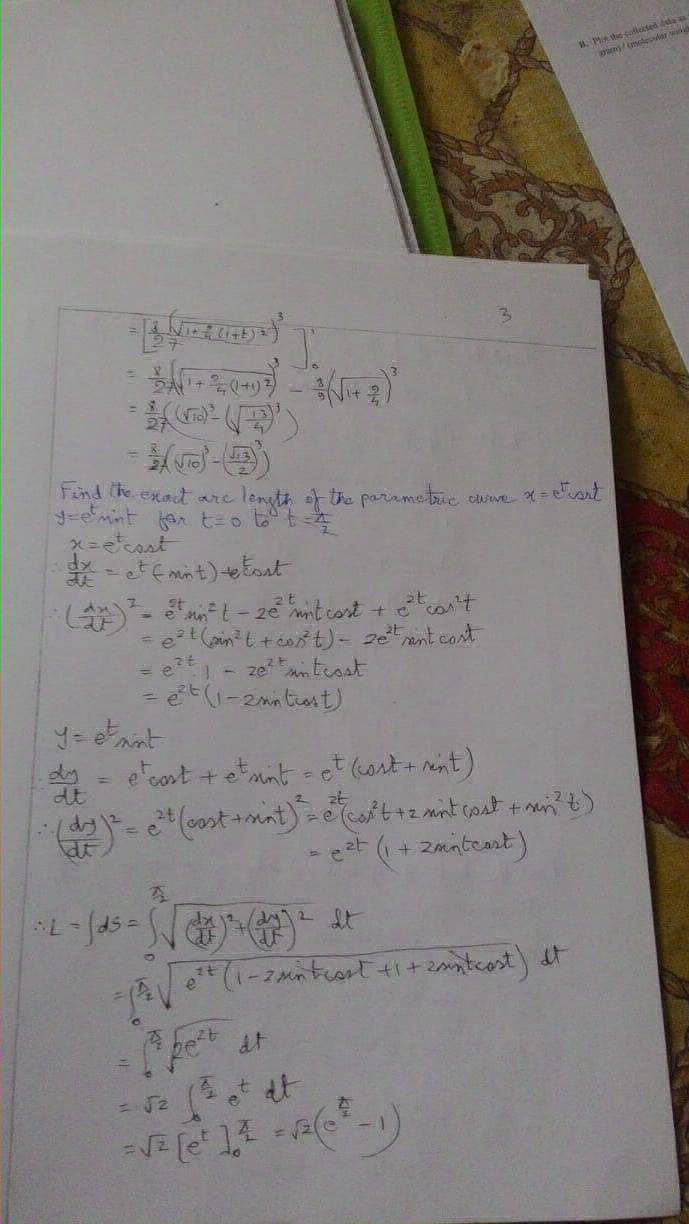 B. Plot the collected data as
gram) / (molecular weigh
3
= [8/27 (√(1+9/4(1+t)^2))^3]_0^1
= 8/27 (√(1+9/4(1+1)^2))^3 - 8/9 (√(1+9/4))^3
= 8/27 ((√10)^3 - (√(13/4))^3)
= 8/27 ((√10)^3 - (√13/2)^3)
Find the exact arc length of the parametric curve x=e^t cost
y=e^t sint for t=0 to t=π/2
x=e^t cost
∴ dx/dt = e^t(-sint)+e^t cost
∴ (dx/dt)^2 = e^2t sin^2t - 2e^2t sint cost + e^2t cos^2t
= e^2t (sin^2t + cos^2t) - 2e^2t sint cost
= e^2t . 1 - 2e^2t sint cost
= e^2t (1-2sint cost)
y=e^t sint
∴ dy/dt = e^t cost + e^t sint = e^t (cost + sint)
∴ (dy/dt)^2 = e^2t (cost+sint)^2 = e^2t (cos^2t+2 sint cost + sin^2t)
= e^2t (1 + 2sint cost)
∴ L = ∫ds = ∫_0^π/2 √((dx/dt)^2+(dy/dt)^2) dt
= ∫_0^π/2 √(e^2t (1-2sint cost +1+2sint cost)) dt
= ∫_0^π/2 √(2e^2t) dt
= √2 ∫_0^π/2 e^t dt
= √2 [e^t]_0^π/2 = √2 (e^π/2 - 1)